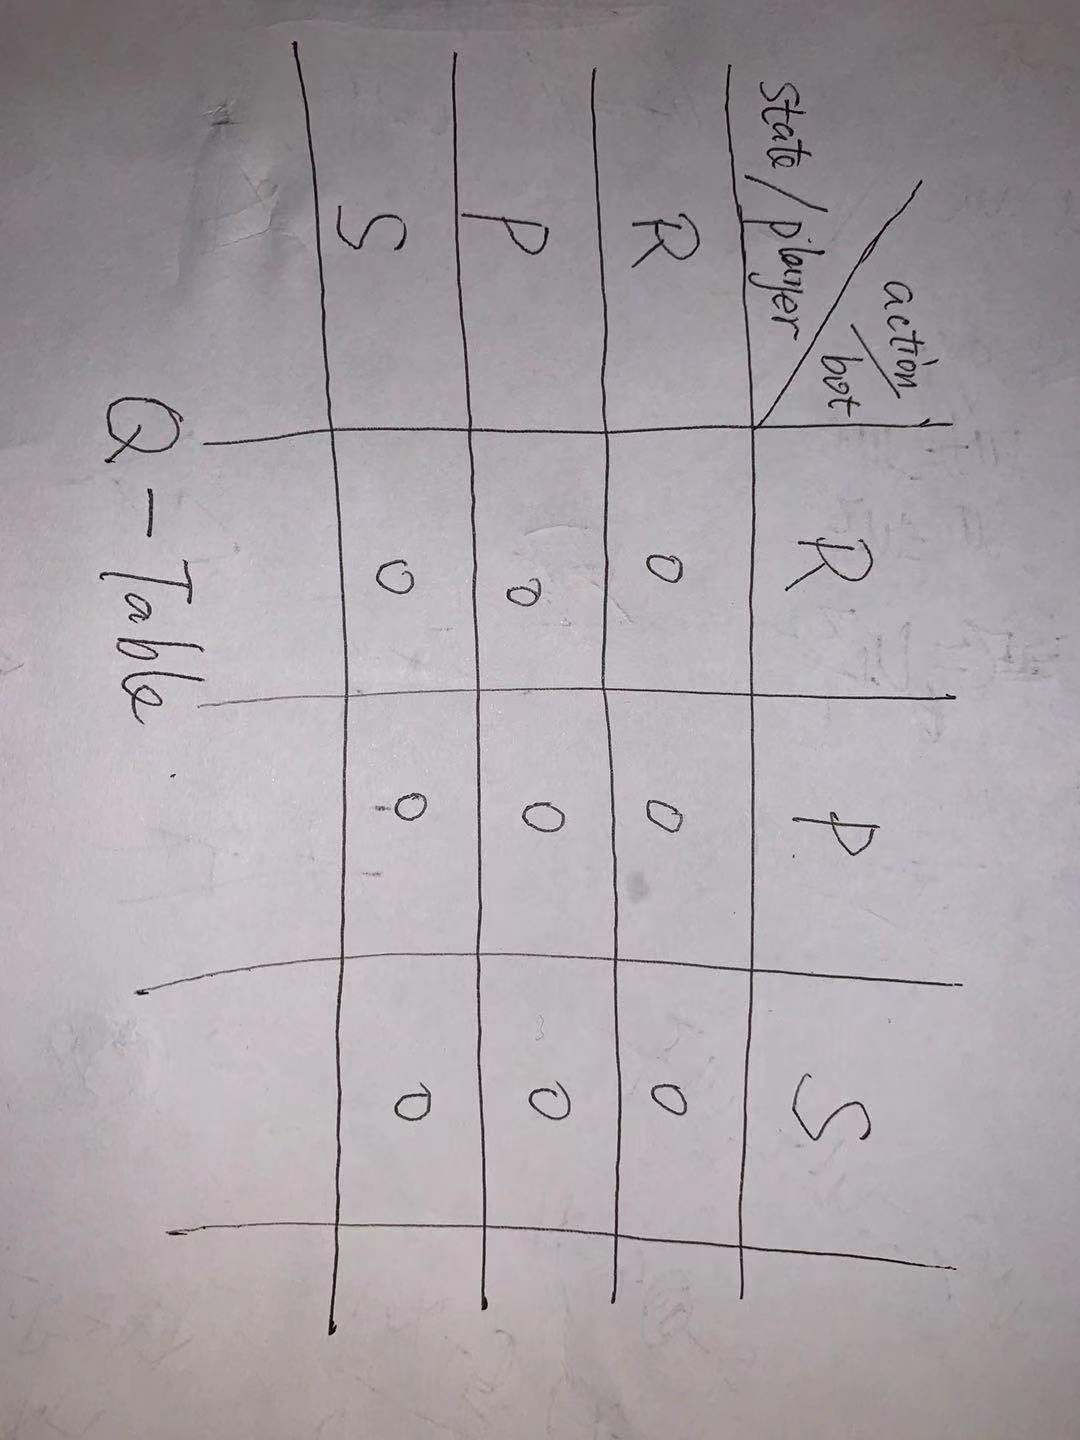 action/bot R P S
state/player
R 0 0 0
P 0 0 0
S 0 0 0
Q-Table